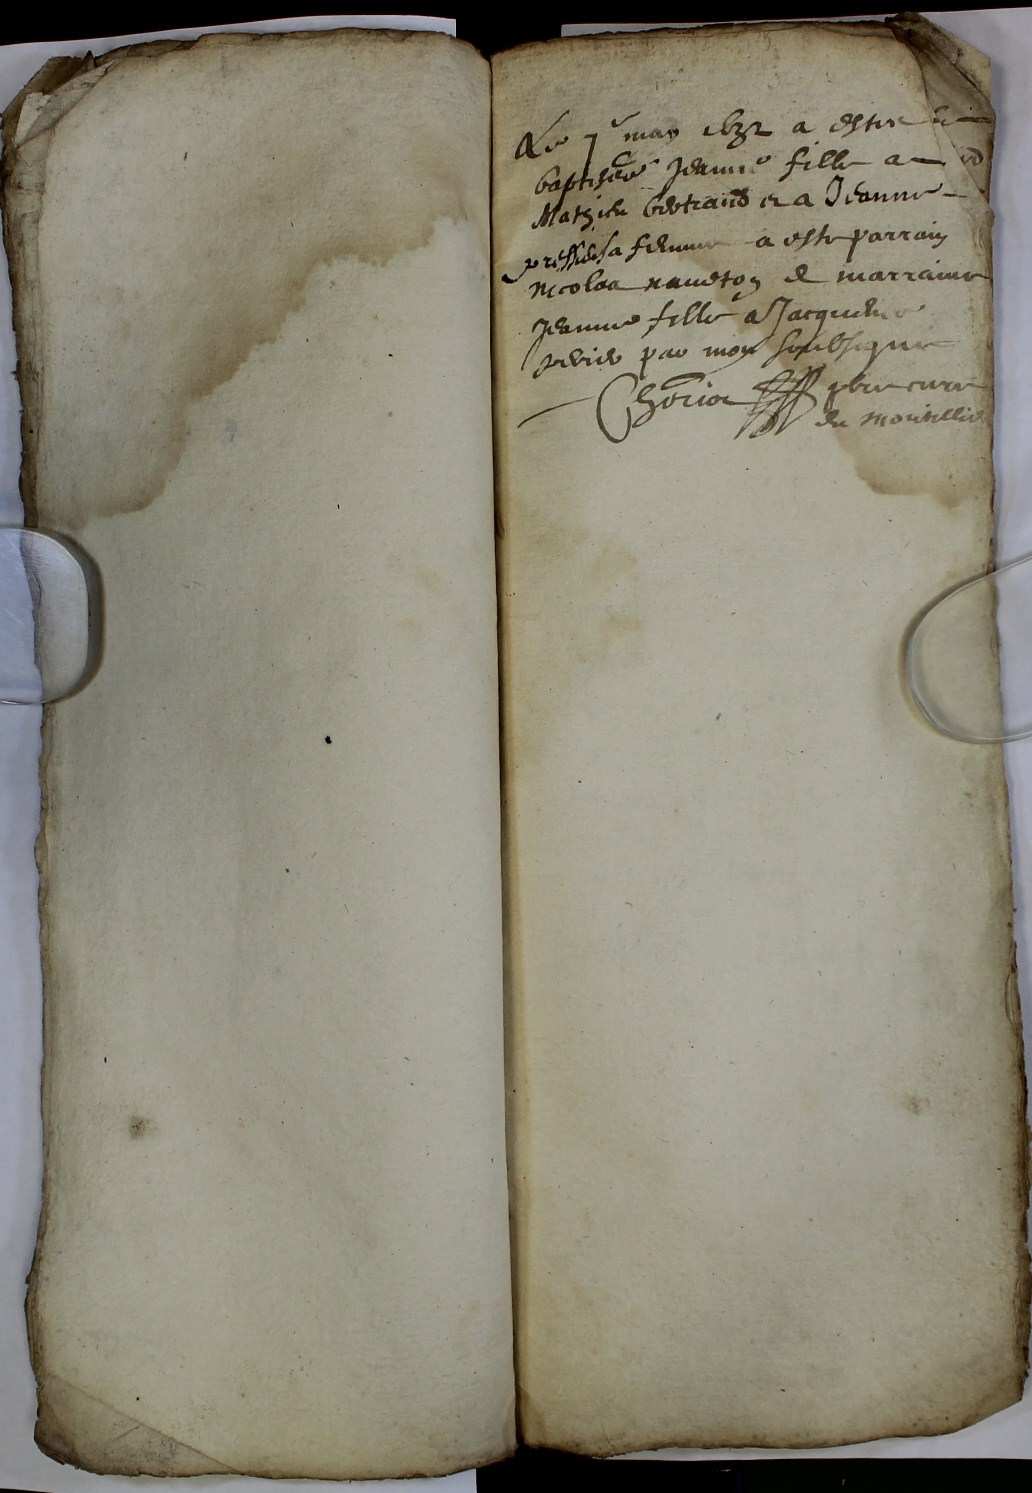 Le 7e may 1632 a estee
baptisée Jeanne fille a
Mathieu bertrand et a Jeanne
sa femme a este parrain
nicolas naudton et marraine
Jeanne fille a Jacques
par moy soubsigne
Chorier pbre cure
du monestier